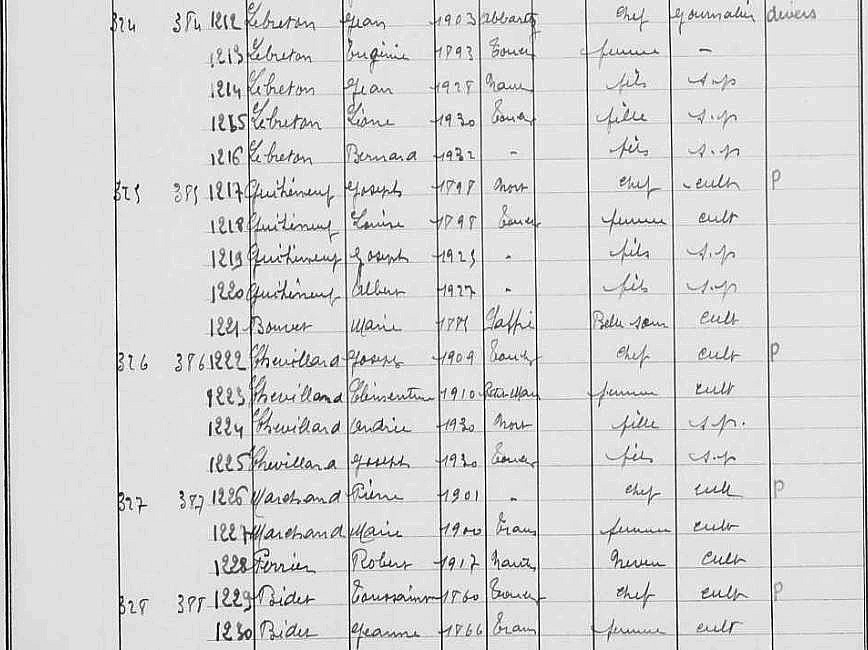 324 384 1212 Lebreton Jean 1903 Abbaretz chef journalier divers
1213 Lebreton Eugénie 1893 femme -
1214 Lebreton Jean 1928 fils s.p
1215 Lebreton 1930 fille s.p
1216 Lebreton Bernard 1932 - fils s.p
325 385 1217 Guihéneuf Joseph 1898 Nort chef cult P
1218 Guihéneuf Louise 1898 femme cult
1219 Guihéneuf Joseph 1925 - fils s.p
1220 Guihéneuf Albert 1927 - fils s.p
1221 Bouvet Marie Saffré Belle sœur cult
326 386 1222 Chevillard Joseph 1909 chef cult P
1223 Chevillard Clémentine 1910 femme cult
1224 Chevillard Andrée 1930 Nort fille s.p.
1225 Chevillard Joseph 1930 fils s.p
327 387 1226 Marchand Pierre 1901 - chef cult P
1227 Marchand Marie 1900 femme cult
1228 Perrien Robert 1917 neveu cult
328 388 1229 Bidet Toussaint 1860 chef cult P
1230 Bidet Jeanne 1866 femme cult